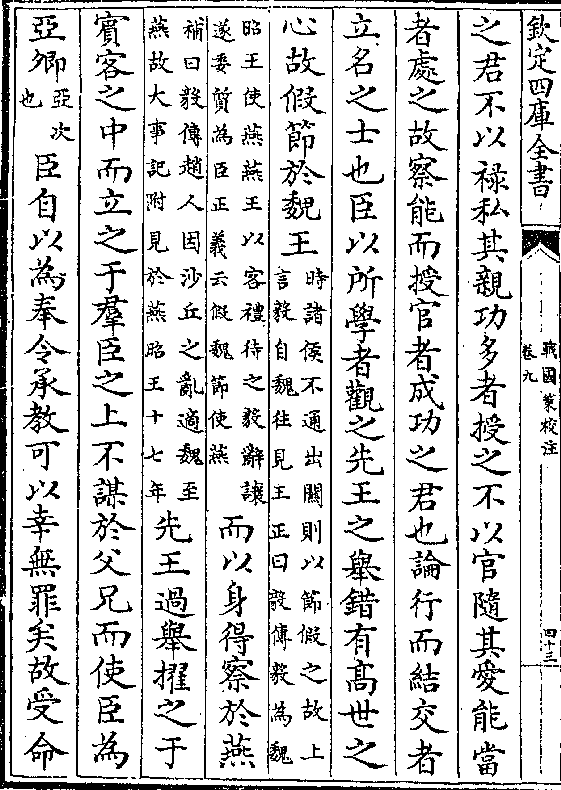 欽定四庫全書
戰國策校注
卷九
四十三
之君不以禄私其親功多者授之不以官隨其愛能當
者處之故察能而授官者成功之君也論行而結交者
立名之士也臣以所學者觀之先王之舉錯有髙世之
心故假節於魏王
時諸侯不通出關則以節假之故上
言毅自魏往見王正曰毅傳毅為魏
昭王使燕燕王以客禮待之毅辭讓
遂委質為臣正義云假魏節使燕
而以身得察於燕
補曰毅傳趙人因沙丘之亂適魏至
燕故大事記附見於燕昭王十七年
先王過舉擢之于
賔客之中而立之于羣臣之上不謀於父兄而使臣為
亞卿
亞次
也
臣自以為奉令承教可以幸無罪矣故受命